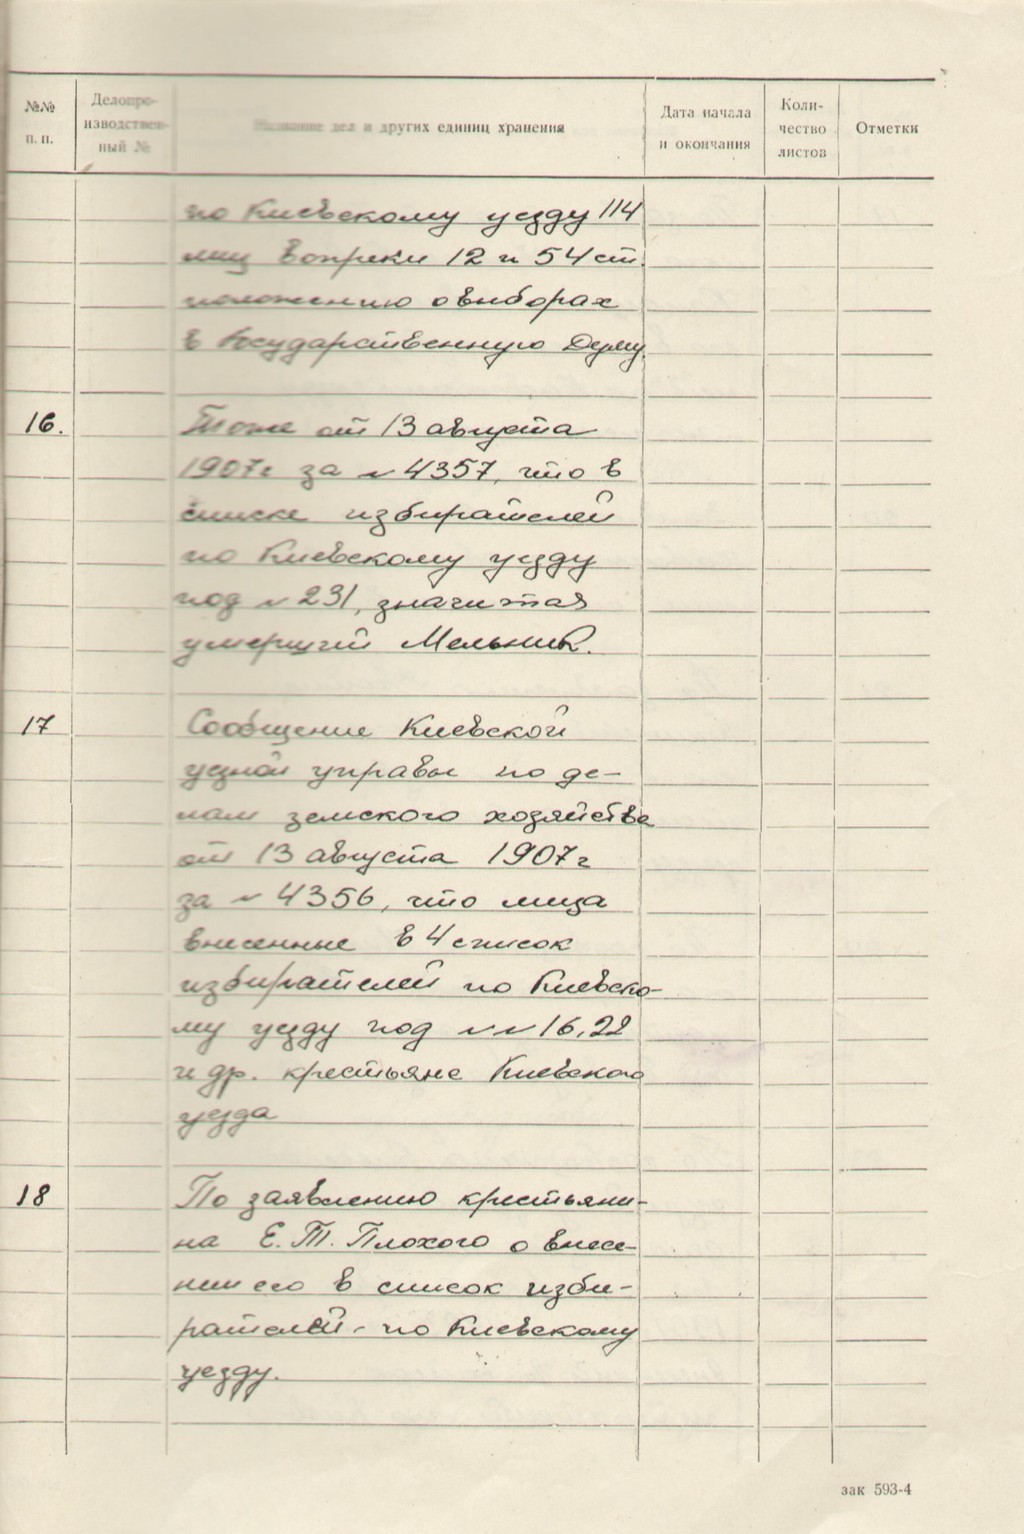 №№ п. п.
Делопро-
изводствен-
ный №
Название дел и других единиц хранения
Дата начала
и окончания
Коли-
чество
листов
Отметки
по Киевскому уезду 114
лиц вопреки 12 и 54 ст.
положению о выборах
в Государственную Думу.
16.
Тоже от 13 августа
1907г за № 4357, что в
списке избирателей
по Киевскому уезду
под № 231, значится
умерший Мельник.
17
Сообщение Киевской
уездной управы по де-
лам земского хозяйства
от 13 августа 1907г
за № 4356, что лица
внесенные в 4 список
избирателей по Киевско-
му уезду под №№ 16, 22
и др. крестьяне Киевского
уезда
18
По заявлению крестьяни-
на Е. Т. Плохого о внесе-
нии его в список изби-
рателей - по Киевскому
уезду.
зак 593-4